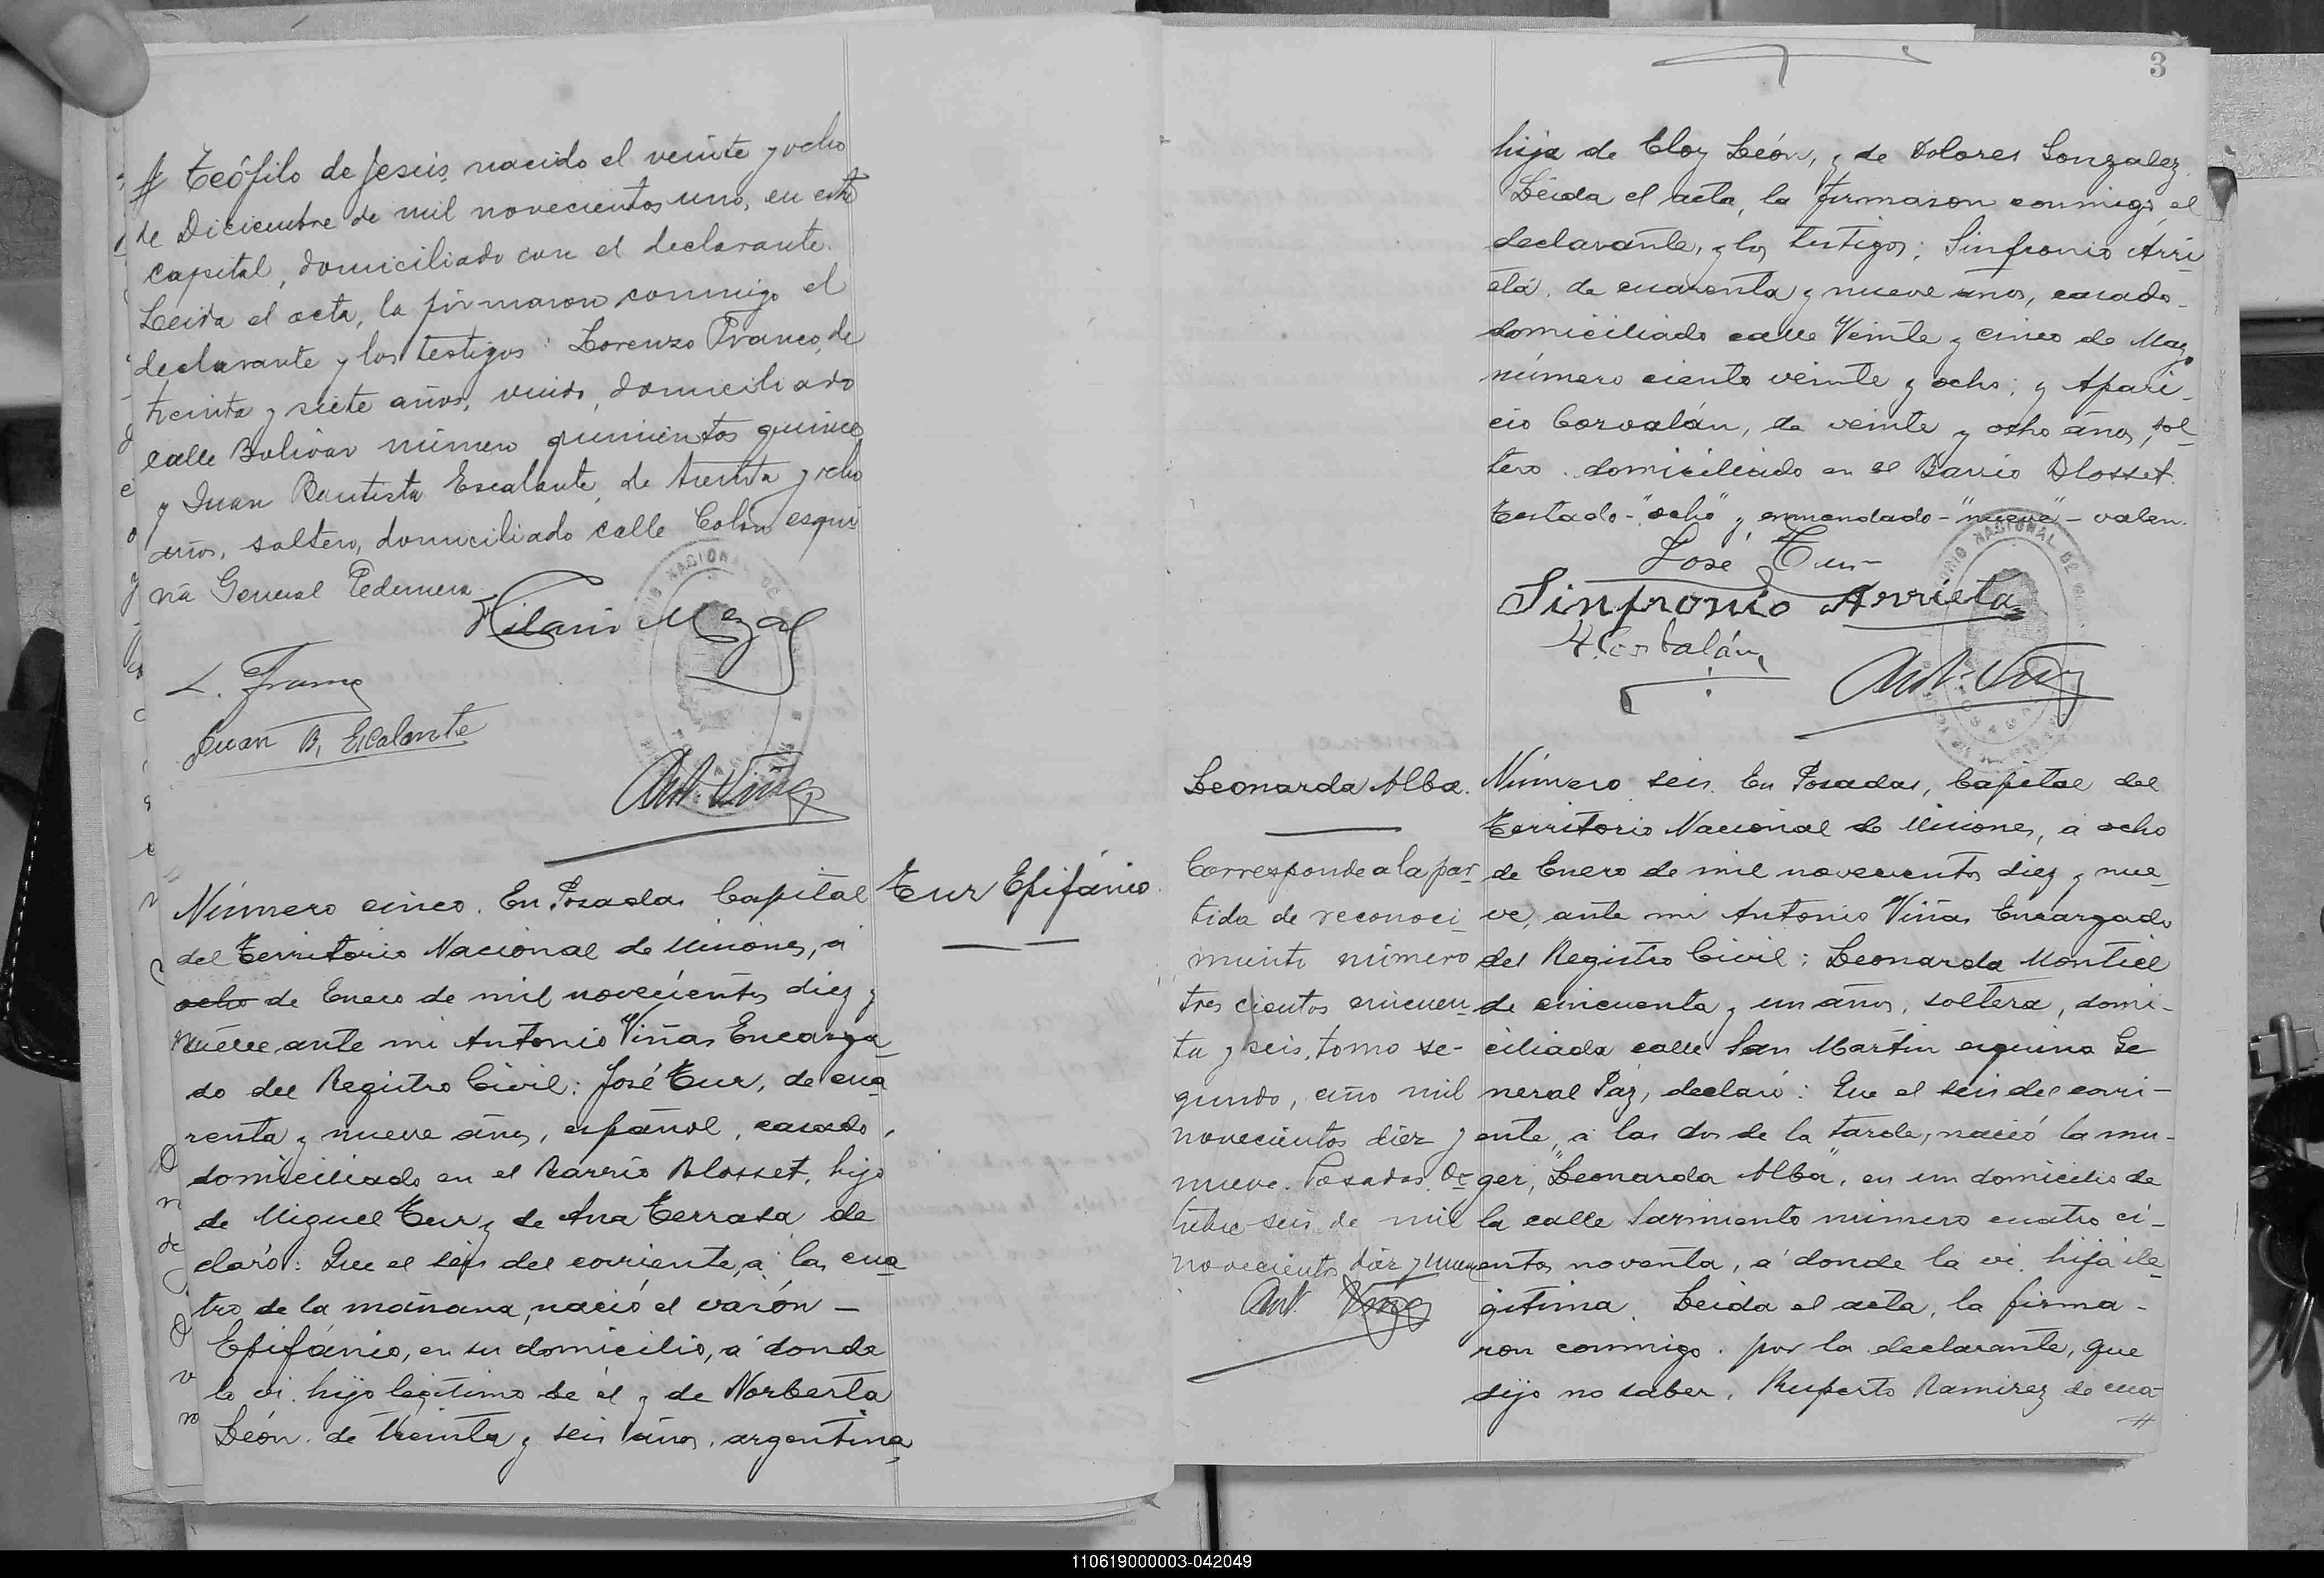 # Teófilo de Jesús, nacido el veinte y ocho
de Diciembre de mil novecientos uno, en esta
capital, domiciliado con el declarante.
Leida el acta, la firmaron conmigo el
declarante y los testigos: Lorenzo Franco, de
treinta y siete años, viudo, domiciliado
calle Bolívar número quinientos quince
y Juan Bautista Escalante, de treinta y ocho
años, soltero, domiciliado calle Colón esqui
na General Pedernera
Hilario Meza
L. Franco
Juan B. Escalante
Ant. Viñas
Tur Epifánio
Número cinco. En Posadas Capital
del Territorio Nacional de Misiones, á
ocho de Enero de mil novecientos diez y
nueve ante mi Antonio Viñas Encarga
do del Registro Civil: José Tur, de cua
renta y nueve años, español, casado,
domiciliado en el Barrio Blosset, hijo
de Miguel Tur y de Ana Terrasa de
claró: Que el seis del corriente, á las cua
tro de la mañana, nació el varón —
Epifánio, en su domicilio, á donde
lo vi. hijo legítimo de él y de Norberta
León. de treinta y seis años, argentina,
3
hija de Eloy León, y de Dolores Gonzalez.
Leida el acta, la firmaron conmigo, el
declarante, y los testigos; Sinfronio Arri-
eta. de cuarenta y nueve años, casado-
domiciliado calle Veinte y cinco de Mayo
número ciento veinte y ocho; y Apari-
cio Corvalán, de veinte y ocho años, sol-
tero. domiciliado en el Barrio Blosset.
Testado-"ocho" y enmendado-"nueve"- valen.
José Tur
Sinfronio Arrieta
A. Corbalán
Ant. Viñas
Leonarda Alba.
Corresponde a la par-
tida de reconoci-
miento número
tres cientos cincuen-
ta y seis, tomo se-
gundo, año mil
novecientos diez y
nueve. Posadas. Oc-
tubre seis de mil
novecientos diez y nueve
Ant. Viñas
Número seis. En Posadas, Capital del
Territorio Nacional de Misiones, á ocho
de Enero de mil novecientos diez y nue-
ve, ante mi Antonio Viñas Encargado
del Registro Civil: Leonarda Montiel
de cincuenta y un años, soltera, domi-
ciliada calle San Martin esquina Ge
neral Paz, declaró: Que el seis del corri-
ente, á las dos de la tarde, nació la mu-
ger, "Leonarda Alba", en un domicilio de
la calle Sarmiento número cuatro ci-
entos noventa, á donde la vi. hija ile-
gitima. Leida el acta, la firma-
ron conmigo. por la declarante, que
dijo no saber, Ruperto Ramirez de cua-
#
110619000003-042049